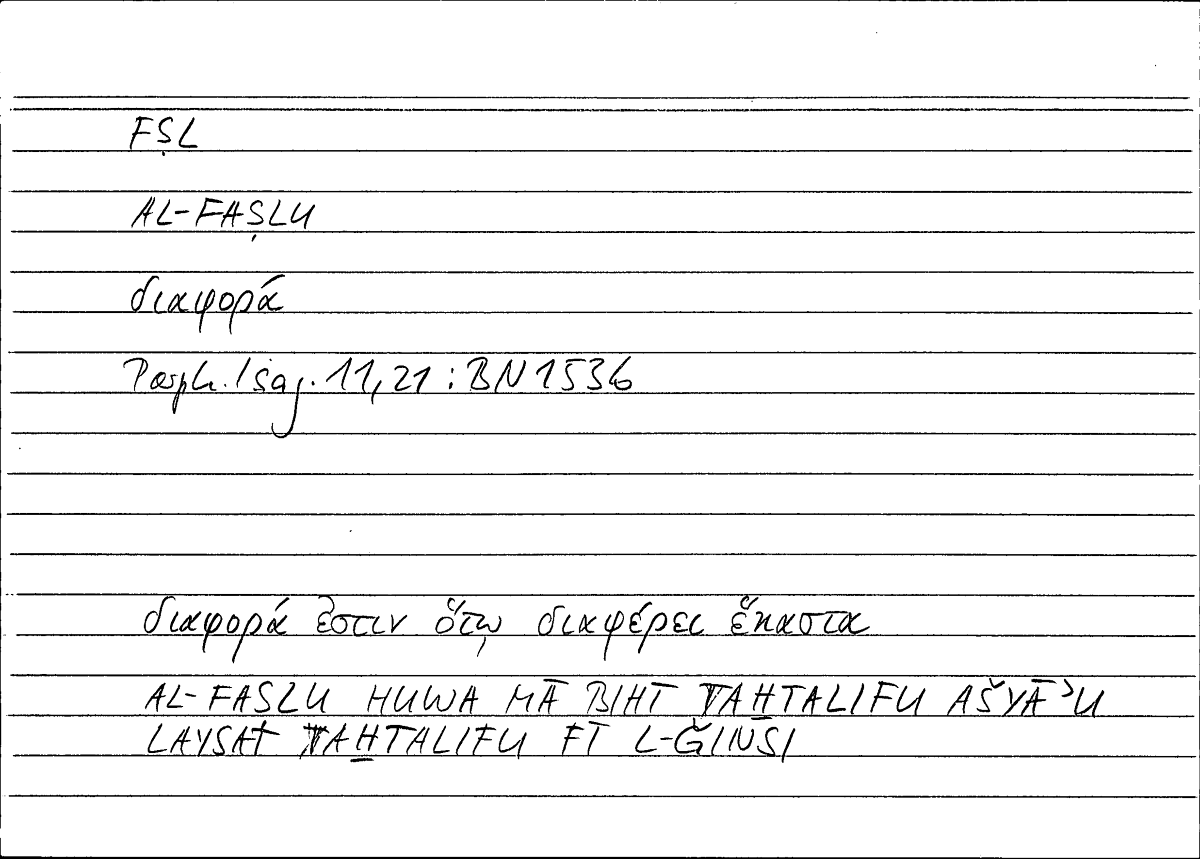 FṢL
AL-FAṢLU
διαφορά
Porph. Isag. 11,21 : BN 1536
διαφορά ἐστιν ὅτῳ διαφέρει ἕκαστα
AL-FASLU HUWA MĀ BIHĪ TAḪTALIFU AŠYĀʾU
LAYSAT TAḪTALIFU FĪ L-ǦINSI